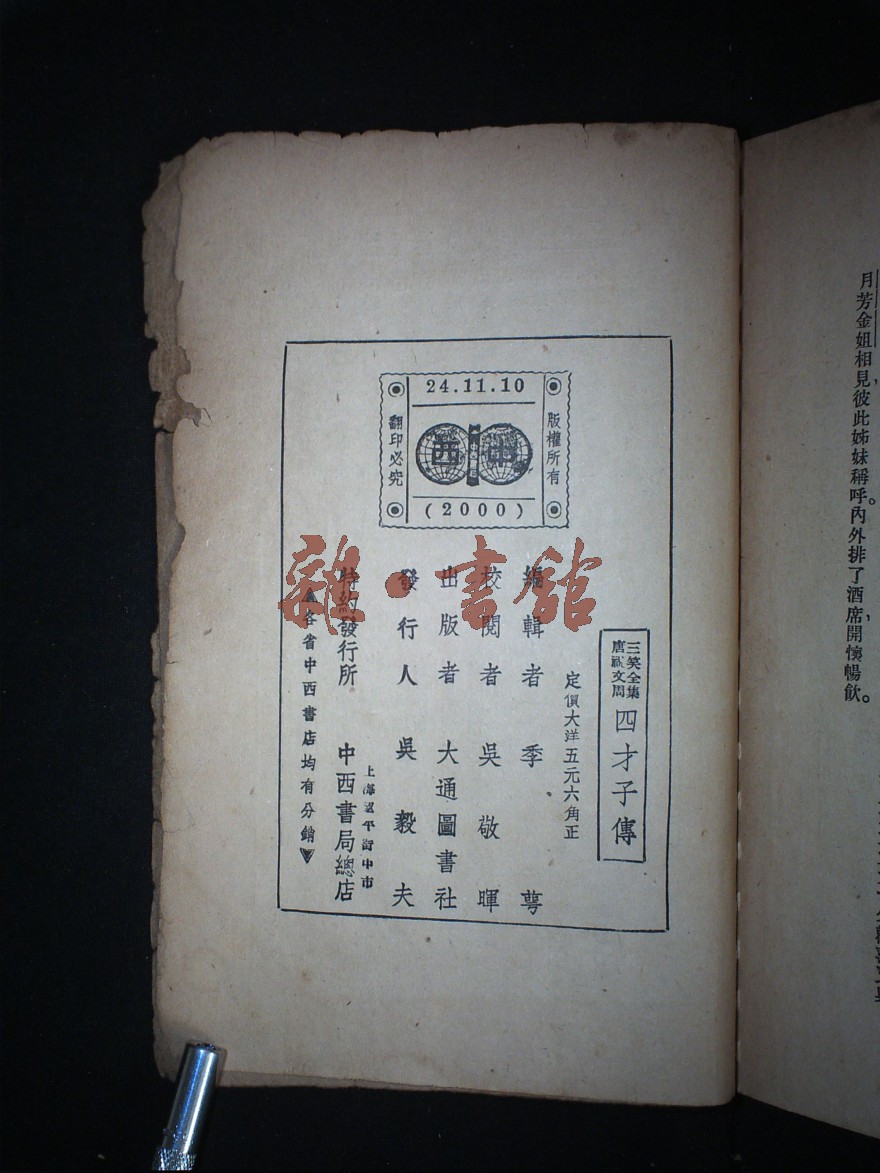 月芳金姐相見，彼此姊妹稱呼。內外排了酒席，開懷暢飲。
三笑全集
唐祝文周
四才子傳
定價大洋五元六角正
編輯者 季萼
校閱者 吳敬暉
出版者 大通圖書社
發行人 吳毅夫
上海望平街中市
特約發行所 中西書局總店
▲各省中西書店均有分銷▼
24.11.10
版權所有
中西
翻印必究
(2000)
雜·書館